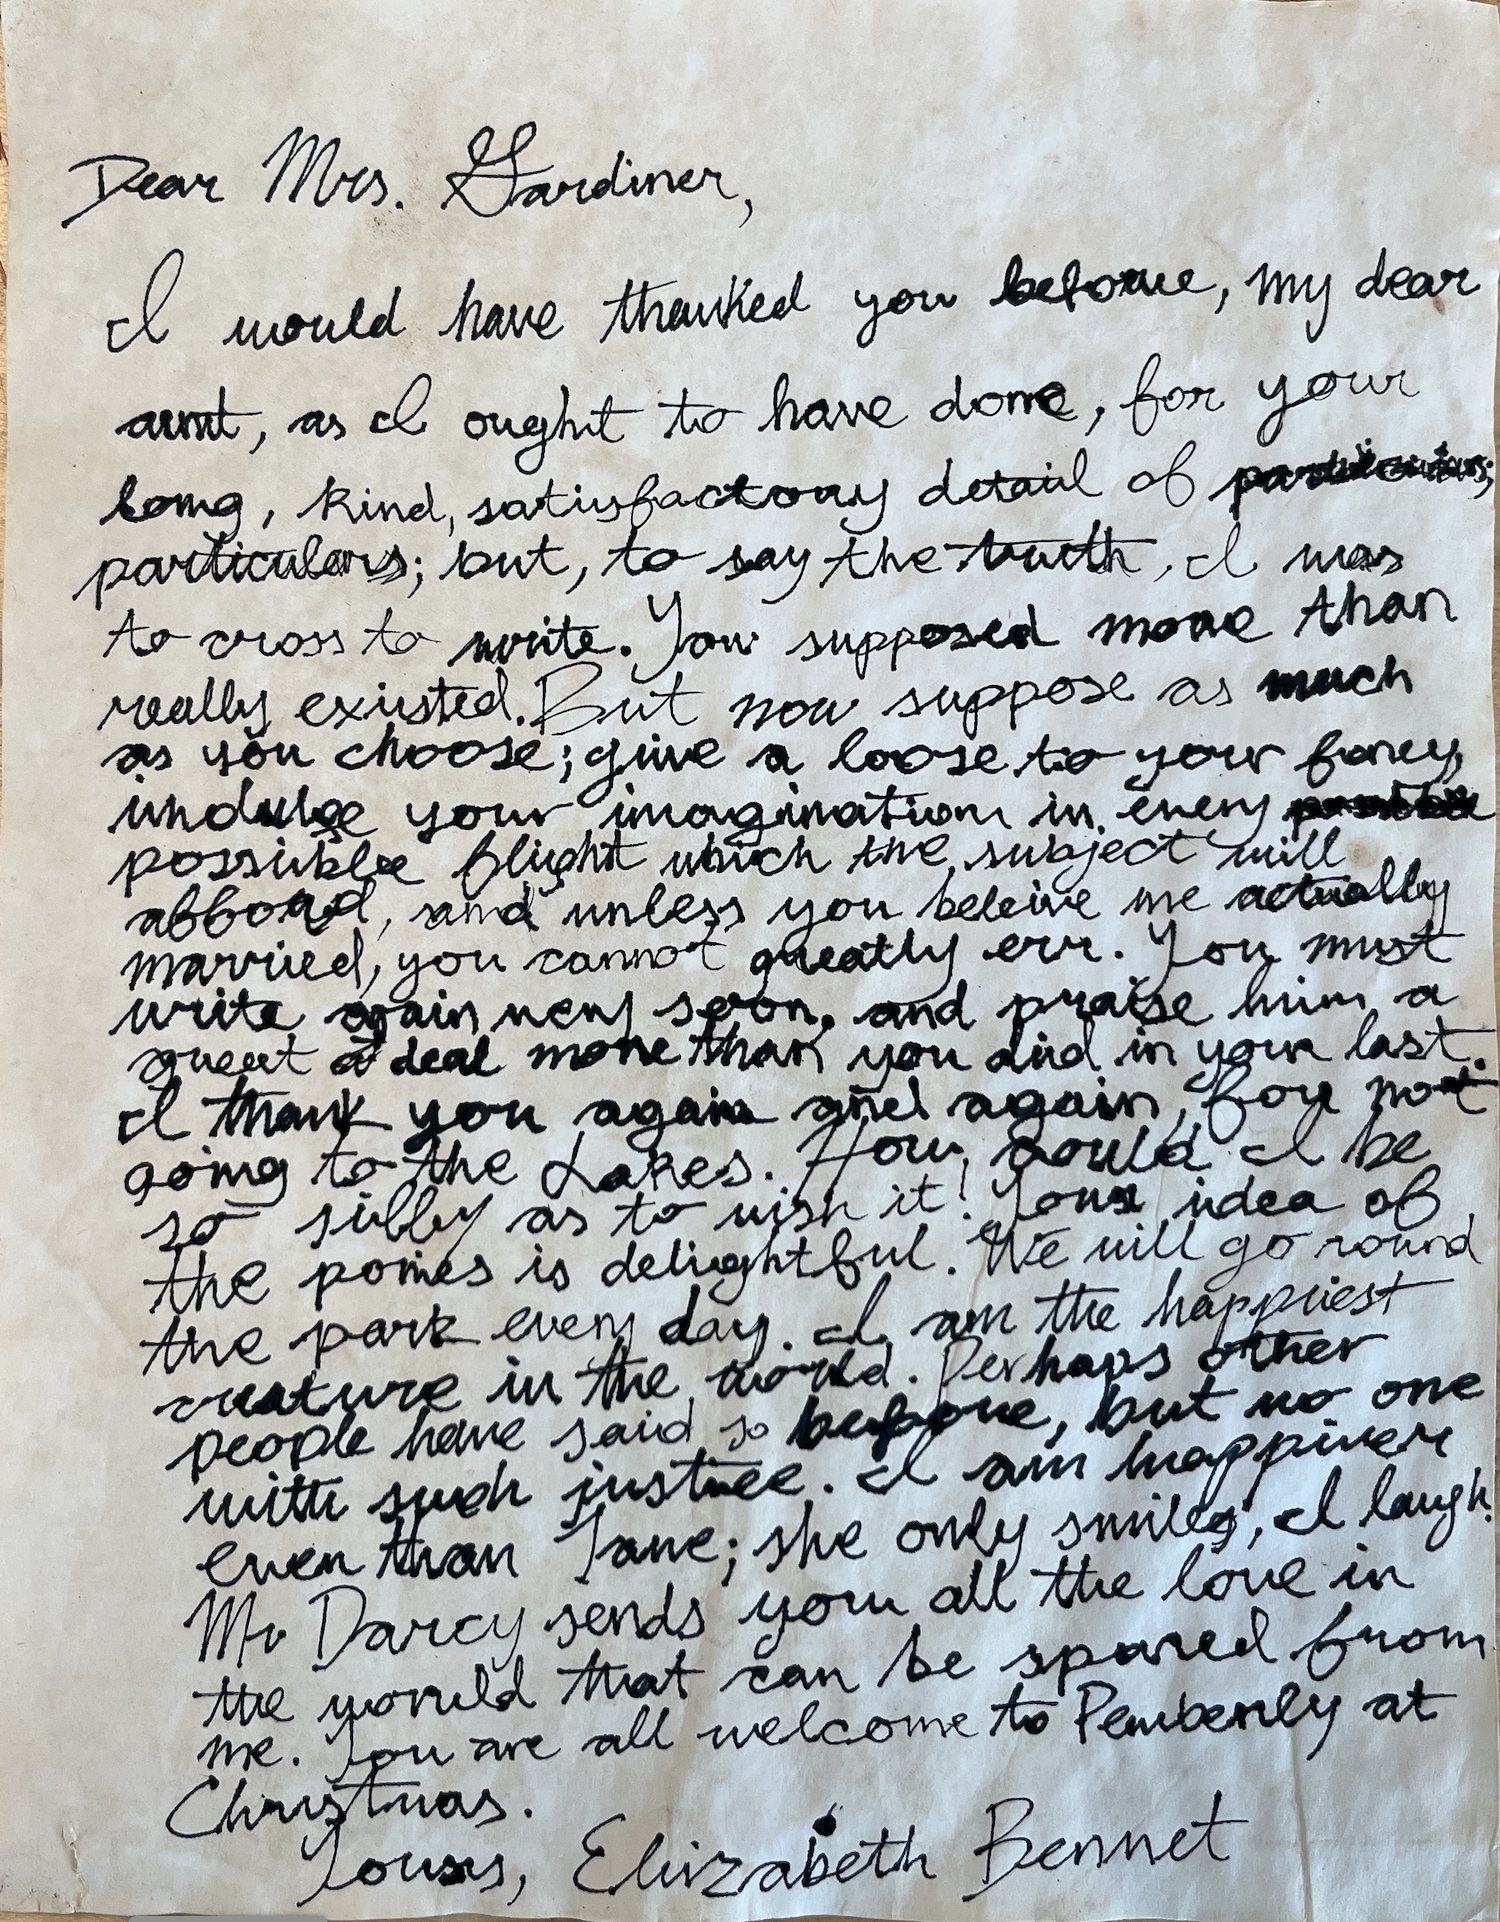 Dear Mrs. Gardiner,
I would have thanked you before, my dear
aunt, as I ought to have done, for your
long, kind, satisfactory detail of
particulars; but, to say the truth, I was
to cross to write. You supposed more than
really existed. But now suppose as much
as you choose; give a loose to your fancy,
indulge your imagination in every possible
possible flight which the subject will
afford, and unless you beleive me actually
married, you cannot greatly err. You must
write again very soon, and praise him a
great deal more than you did in your last.
I thank you again and again, for not
going to the Lakes. How could I be
so silly as to wish it! Your idea of
the ponies is delightful. We will go round
the park every day. I am the happiest
creature in the world. Perhaps other
people have said so before, but no one
with such justice. I am happier
even than Jane; she only smiles, I laugh.
Mr Darcy sends you all the love in
the world that can be spared from
me. You are all welcome to Pemberly at
Christmas.
Yours, Elizabeth Bennet